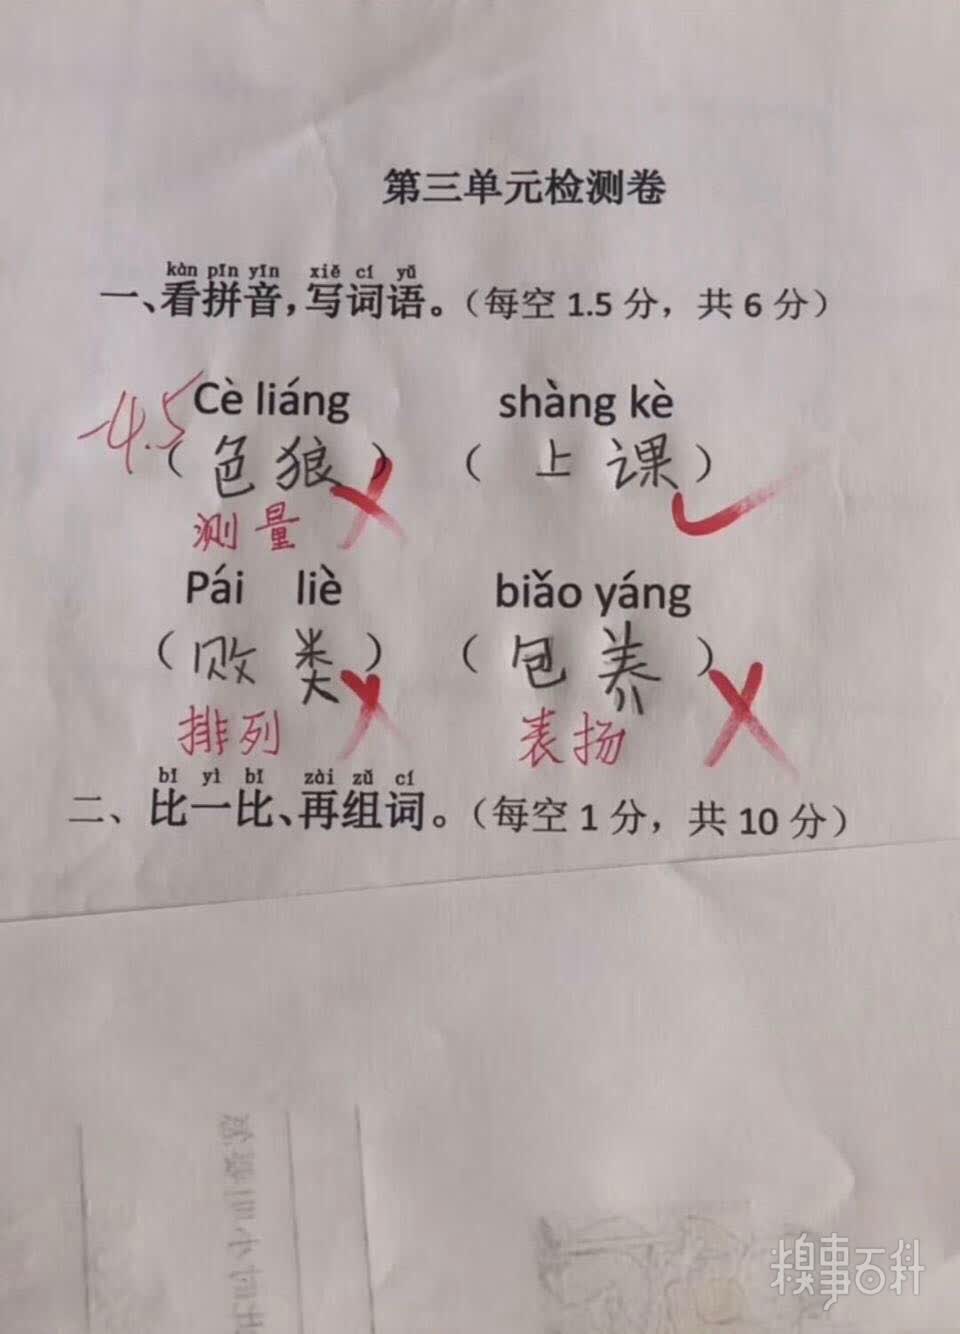 第三单元检测卷
kàn pīn yīn xiě cí yǔ
一、看拼音，写词语。（每空 1.5 分，共 6 分）
-4.5
Cè liáng shàng kè
（色狼）（上课）
测量
Pái liè biǎo yáng
（败类）（包养）
排列 表扬
bǐ yì bǐ zài zǔ cí
二、比一比、再组词。（每空 1 分，共 10 分）
糗事百科